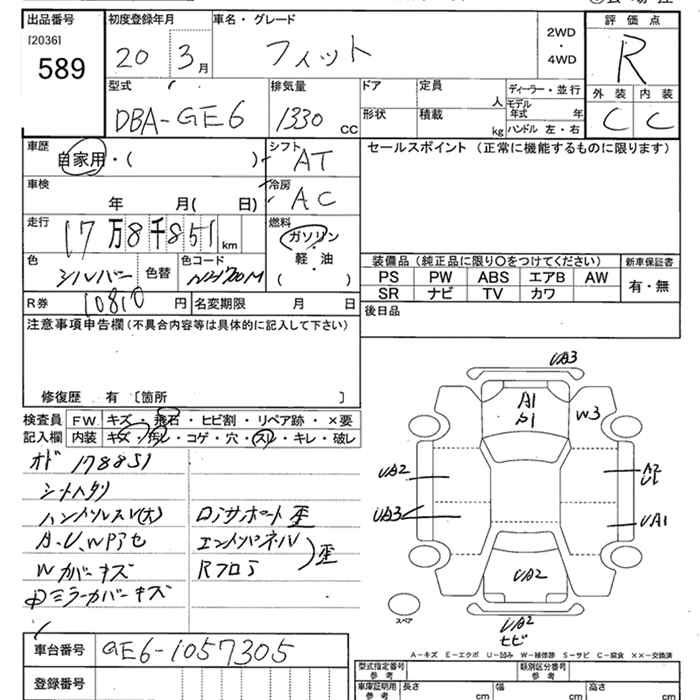 出品番号
[2036]
589
初度登録年月
20 3月
車名・グレード
フィット
2WD
・
4WD
評価点
R
外装 内装
C C
型式
DBA-GE6
排気量
1330 cc
ドア
形状
定員 人
積載 kg
ディーラー・並行
モデル年式 年
ハンドル 左・右
車歴
自家用・( )
シフト
AT
車検
年 月( 日)
冷房
AC
走行
17万8千851km
燃料
ガソリン
軽・油
( )
色
シルバー
色替
色コード
NH700M
R券
10810円
名変期限 月 日
セールスポイント (正常に機能するものに限ります)
装備品 (純正品に限り○をつけてください)
PS PW ABS エアB AW
SR ナビ TV カワ
新車保証書
有・無
後日品
注意事項申告欄(不具合内容等は具体的に記入して下さい)
修復歴 有 〔箇所 〕
検査員記入欄
FW キズ・飛石・ヒビ割・リペア跡・×要
内装 キズ・汚レ・コゲ・穴・スレ・キレ・破レ
オド 178851
シートヘタリ
ハンドルスレ(大)
A.U.WPアセ
Wカバーキズ
ミラーカバーキズ
ロアサポート歪
エンドパネル
Rフロア
歪
UA3
A1
S1
W3
UA2
UA3
A2
UA1
UA2
UA2
ヒビ
スペア
A-キズ E-エクボ U-凹み W-補修跡 S-サビ C-腐食 ××-交換済
車台番号
GE6-1057305
登録番号
型式指定番号
参考
類別区分番号
参考
車庫証明用
参考
長さ cm
幅 cm
高さ cm